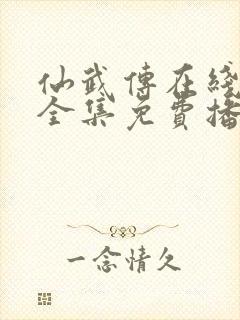 仙武傳在綫
全集免費播
一念情久